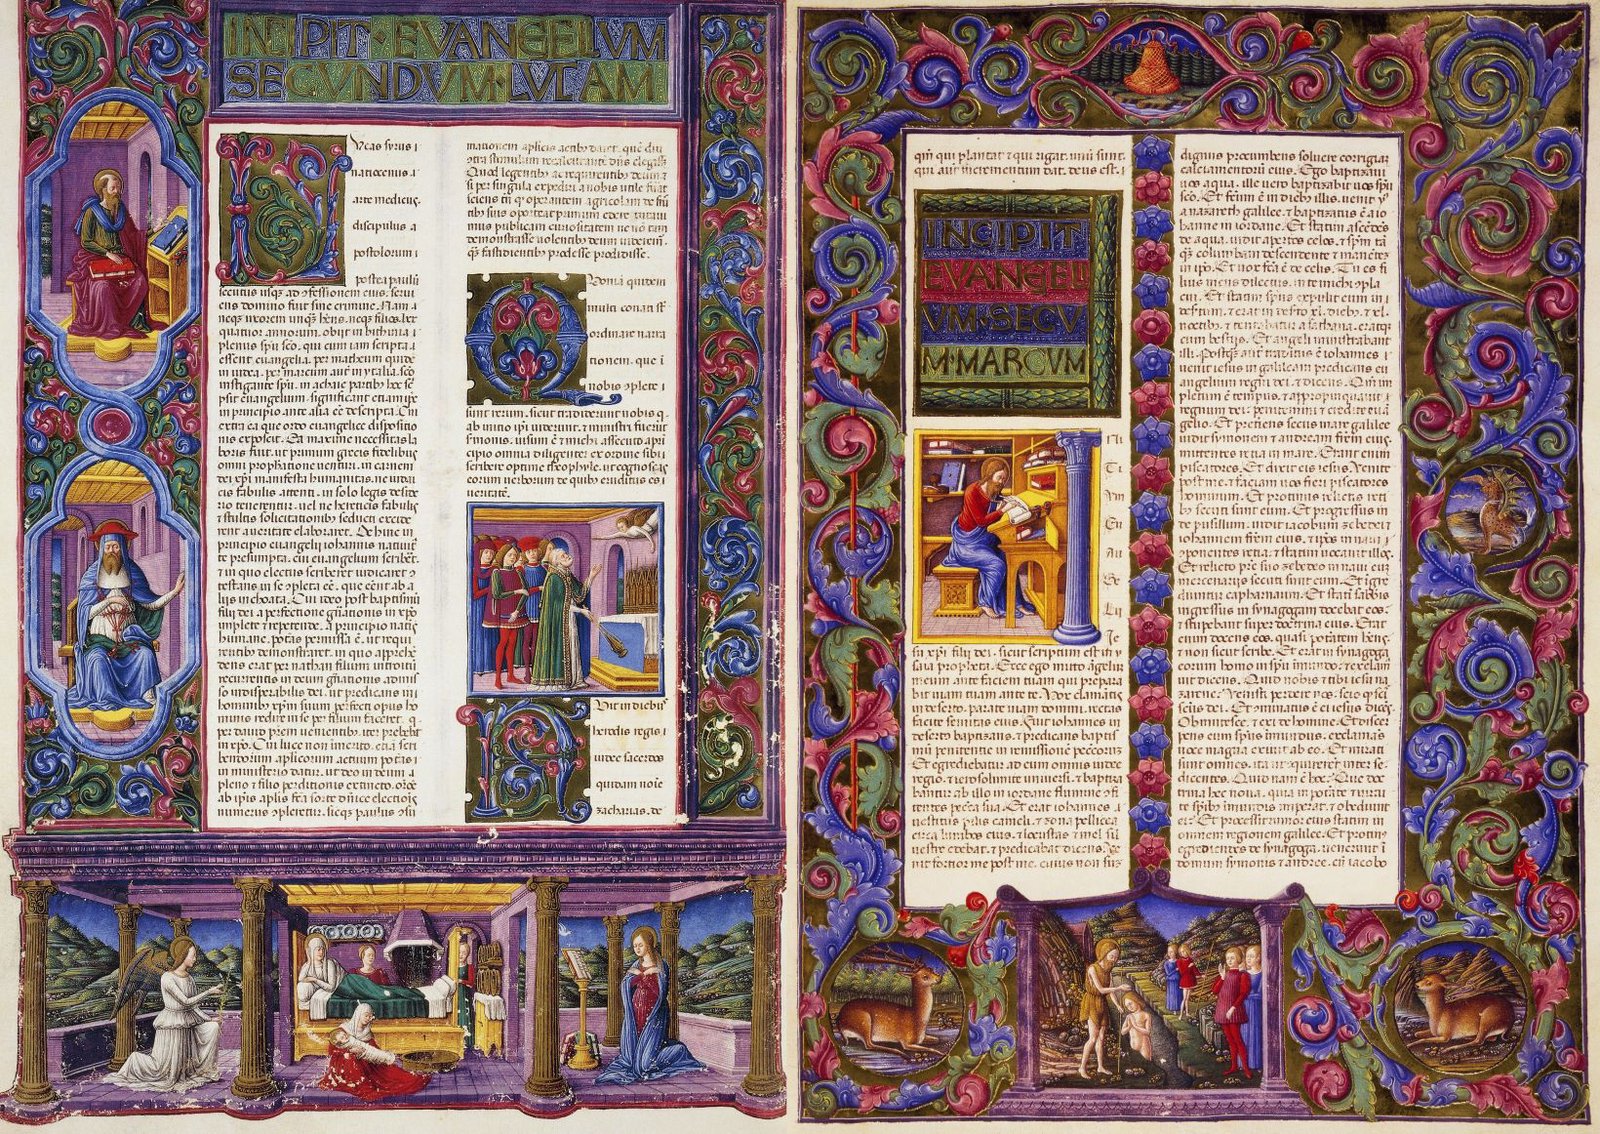 INCIPIT·EVANGELVM
SECVNDVM·LVCAM
L
Vcas syrus
natione
arte medicus
discipulus a
postolorum
postea pauli
secutus usq ad confessionem eius. serui
ens domino sine crimine. Nam
neq uxorem unq hens. neq filios
quatuor annorum. obijt in bithinia
plenus spu sco. qui cum iam scripta
essent euangelia. per matheum quidē
in iudea. per marcum aut in ytalia. sco
instigante spū. in achaie partib
psit euangelium. significans etiam
in principio ante alia
extra ea que ordo euangelice dispositio
nis exposcit. Ea maxime necessitas la
boris fuit. ut primum grecis fidelibus
omni prophatione uenturi. in carnem
dei xpi manifesta humanitas. ne iudai
cis fabulis attenti. in solo legis deside
rio tenerentur. uel ne hereticis fabulis
& stultis solicitationib seducti excide
rent a ueritate elaboraret. Dehinc in
principio euangelij iohannis natiuitate
presumpta. cui euangelium scriberet.
& in quo electus scriberet indicaret
in se
inchoata. Cui ideo post baptismū
filij dei a perfectione
implete & repetende. a principio natiui
humane. potestas permissa ē. ut requi
rentib demonstraret. in quo apprehē
dens erat per nathan filium introitu
recurrentis in deum gnationis admis
so indisparabilis dei. ut predicans in
hominib xpm suum perfecti opus ho
minis redire in se per filium faceret. q
per dauid prem uenientib. iter prebebat
in xpo. Cui luce non īmerito. etiā scri
bendorum aplicorum actuum potestas
in ministerio datur. ut deo in deum
pleno & filio perditionis extincto.
ab ipsis aplis facta sorte dnice electionis
numerus completeretur. sicq paulus
mationem aplicis actib daret. quē diu
contra stimulum recalcitrante dns elegiss
Quod legentib ac requirentib deum
si per singula expediri a nobis utile fuerat
sciens tn q operantem agricolam de fru
ctib suis oporteat primum edere uitaui
mus publicam curiositatem ne nō tam
demonstrasse uolentib deum
q fastidientib prodesse prodidisse.
Q
Voniā quidem
multi conati sst
ordinare narra
tionem. que ī
nobis complete
sunt rerum. sicut tradiderunt nobis q
ab initio ipi uiderunt. & ministri fuerūt
sermonis. uisum ē & michi assecuto a pri
cipio omnia diligenter ex ordine tibi
scribere optime theophyle. ut cognoscas
eorum uerborum de quib eruditus es
ueritatē.
F
Vit in diebus
herodis regis
iudee sacerdos
quidam noīe
zacharias. de
qm qui plantat & qui rigat. unū sunt.
qui aut incrementum dat. deus est.
INCIPIT
EVANGELI
VM·SECV
M·MARCVM
ni
Ti
um
Eu
au
Ge
Lij
Ie
su xpi filij dei. sicut scriptum est in
saia propheta. Ecce ego mitto angelum
meum ante faciem tuam qui prepara
bit uiam tuam ante te. Vox clamātis
in deserto. parate uiam domini. rectas
facite semitas eius. Fuit iohannes in
deserto baptizans. & predicans baptis
mū penitentie in remissionē peccatorum
Et egrediebatur ad eum omnis iudee
regio. & ierosolimite uniuersi. & baptiza
bantur ab illo in iordane flumine confi
tentes peccata sua. Et erat iohannes
uestitus pilis cameli. & zona pellicea
circa lumbos eius. & locustas & mel sil
uestre edebat. & predicabat dicens. Ve
nit fortior me post me. cuius non sum
dignus procumbens soluere corrigiam
calciamentorū eius. Ego baptizaui
uos aqua. ille uero baptizabit uos spu
sco. Et fctum ē in dieb illis. uenit
a nazareth galilee. & baptizatus ē a io
hanne in iordane. Et statim ascēdēs
de aqua. uidit apertos celos. & spm tā
q columbam descendente & manētem
in ipo. Et uox fcā ē de celis. Tu es fi
lius meus dilectus. in te michi compla
cui. Et statim spus expulit eum in
desertum. & erat in deserto xl. dieb. & xl.
noctib. & tentabatur a sathana. eratq
cum bestijs. Et angeli ministrabant
illi. Postq aut traditus ē iohannes
uenit iesus in galileam predicans eu
angelium regni dei. & dicens. Qm im
pletum ē tempus. & appropinquauit
regnum dei. penitemini & credite eua
gelio. Et preteriens secus mare galilee
uidit symonem & andream frēm eius.
mittentes retia in mare. Erant enim
piscatores. Et dixit eis iesus. Venite
post me. & faciam uos fieri piscatores
hominum. Et protinus relictis reti
bus secuti sunt eum. Et progressus in
de pusillum. uidit iacobum zebedei &
iohannem frēm eius. & ipos in naui
componentes retia. & statim uocauit illos.
Et relicto pre suo zebedeo in naui cum
mercenarijs secuti sunt eum. Et ingre
diuntur capharnaum. Et statī sabbis
ingressus in synagogam docebat eos.
& stupebant super doctrina eius. Erat
enim docens eos. quasi potatem hēns.
& non sicut scribe. Et erat in synagoga
eorum homo in spu imundo. & exclam
uit dicens. Quid nobis & tibi iesu na
zarene. Venisti perdere nos. scio q sis
scūs dei. Et cominatus ē ei iesus dicens
Obmutesce. & exi de homine. Et discer
pens eum spūs imundus. exclamās
uoce magna exiuit ab eo. Et mirati
sunt omnes. ita ut quirerēt inter se
dicentes. Quid nam ē hoc. Que doc
trina hec noua. quia in potate & uirtu
te spib imundis imperat. & obediunt
ei. Et processit rumor eius in
omnem regionem galilee. Et protinus
egredientes de synagoga. uenerunt ī
domum symonis & andree. cū iacobo